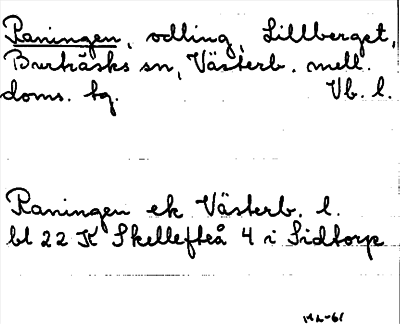 Raningen, odling, Lillberget,
Burträsks sn, Västerb. mell.
doms. tg. Vb. l.
Raningen ek Västerb. l.
bl 22 K Skellefteå 4 i Sidtorp